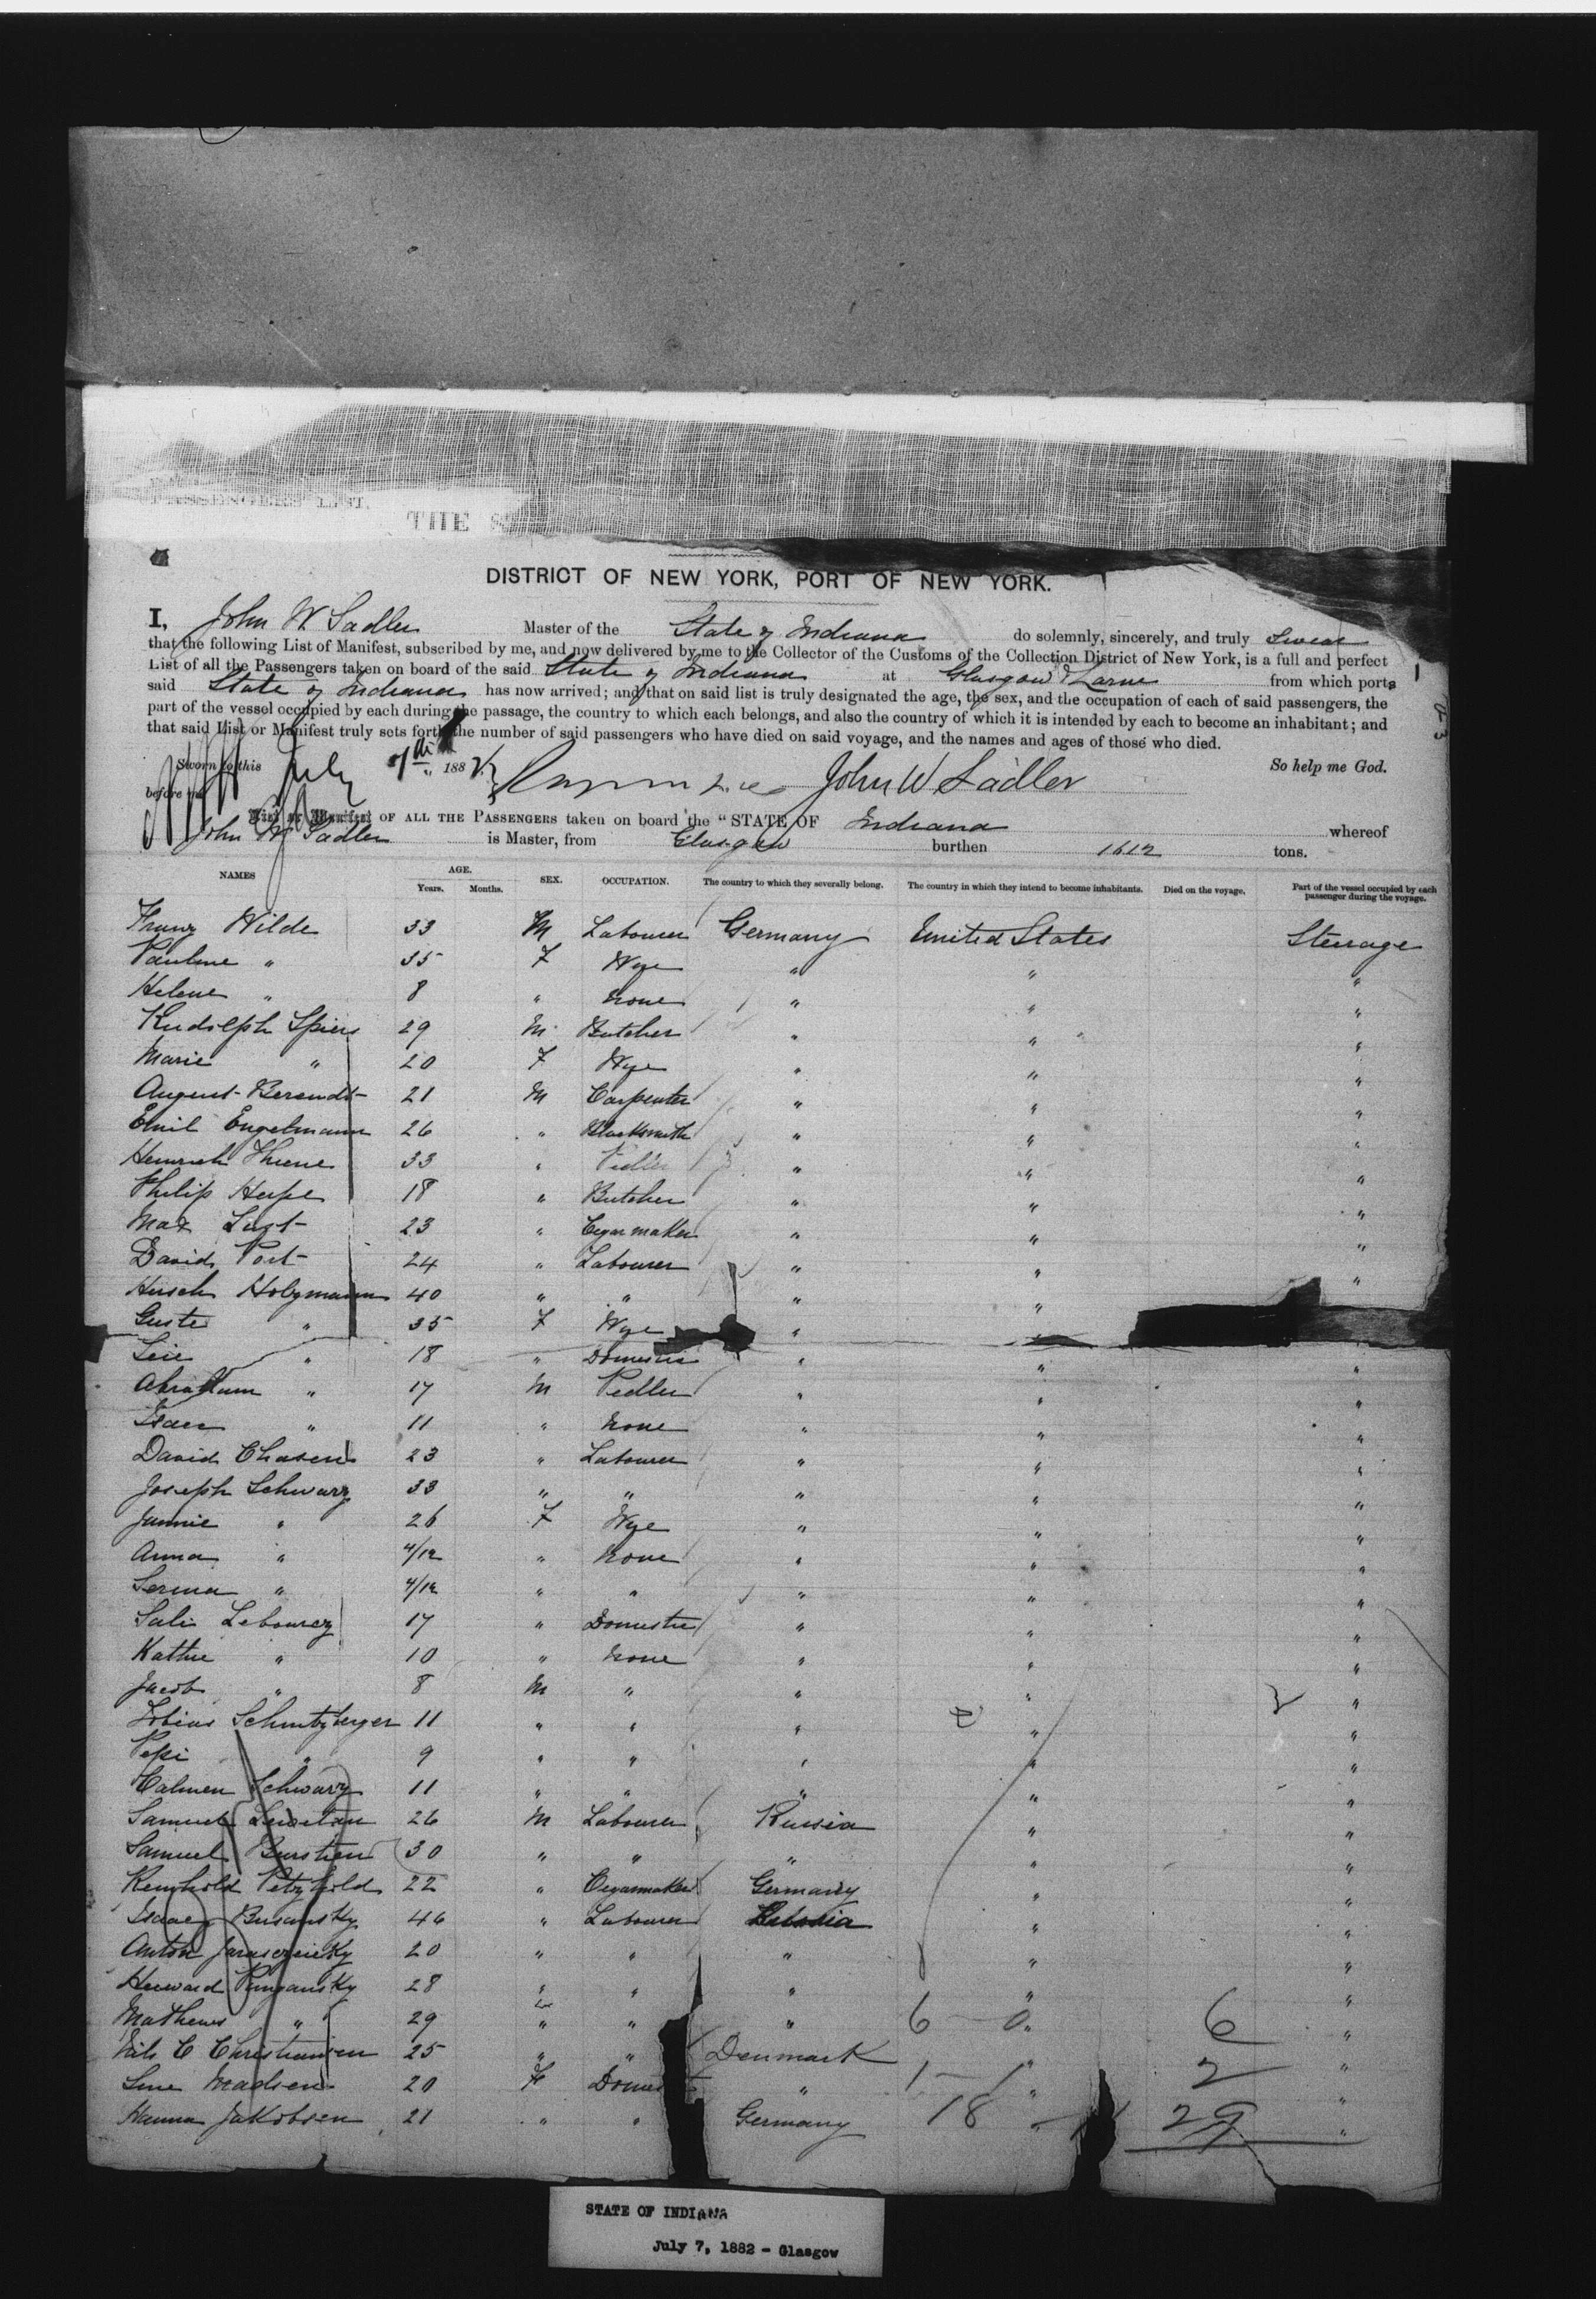 PASSENGERS LIST.
THE S
DISTRICT OF NEW YORK, PORT OF NEW YORK.
I, John W. Sadler Master of the State of Indiana do solemnly, sincerely, and truly Swear
that the following List of Manifest, subscribed by me, and now delivered by me to the Collector of the Customs of the Collection District of New York, is a full and perfect
List of all the Passengers taken on board of the said State of Indiana at Glasgow & Larne from which ports
said State of Indiana has now arrived; and that on said list is truly designated the age, the sex, and the occupation of each of said passengers, the
part of the vessel occupied by each during the passage, the country to which each belongs, and also the country of which it is intended by each to become an inhabitant; and
that said List or Manifest truly sets forth the number of said passengers who have died on said voyage, and the names and ages of those who died.
Sworn to this July 7th 1882 John W Sadler So help me God.
before me
List or Manifest OF ALL THE PASSENGERS taken on board the "STATE OF Indiana whereof
John W Sadler is Master, from Glasgow burthen 1612 tons.
NAMES AGE. Years. Months. SEX. OCCUPATION. The country to which they severally belong. The country in which they intend to become inhabitants. Died on the voyage. Part of the vessel occupied by each passenger during the voyage.
Franz Wilde 33 M Labourer Germany United States Steerage
Pauline " 35 F Wife " " "
Helene " 8 " None " " "
Rudolph Spiers 29 M Butcher " " "
Marie " 20 F Wife " " "
August Berendt 21 M Carpenter " " "
Emil Engelmann 26 " Blacksmith " " "
Heinrich Thiene 33 " Pedler " " "
Philip 18 " Butcher " " "
Max Lust 23 " Cigarmaker " " "
David Post 24 " Labourer " " "
Hirsch Holzmann 40 " " " " "
Guste " 35 F Wife "
Leie " 18 " Domestic " " "
Abraham " 17 M Pedler " " "
Isaac " 11 " None " " "
David Chasen 23 " Labourer " " "
Joseph Schwarz 33 " " " " "
Jannie " 26 F Wife " " "
Anna " 4/12 " None " " "
Serina " 4/12 " " " " "
Sali Lebowicz 17 " Domestic " " "
Kathie " 10 " None " " "
Jacob " 8 M " " " "
Tobias Schmitzberger 11 " " " " "
Pepi " 9 " " " " "
Calmen Schwarz 11 " " " " "
Samuel 26 M Labourer Russia " "
Samuel Burstien 30 " " " " "
Reinhold Petzhold 22 " Cigarmaker Germany " "
Isaac Busansky 46 " Labourer Russia " "
Anton 20 " " " " "
28 " " " " "
Mathews " 29 " " " 6 - 0 " 6 "
Nils C Christiansen 25 " " Denmark " "
Sine Madsen 20 F Domes " 1 - 1 " 2 "
Hanna Jakobsen 21 " " Germany 18 " 29 "
STATE OF INDIANA
July 7, 1882 - Glasgow